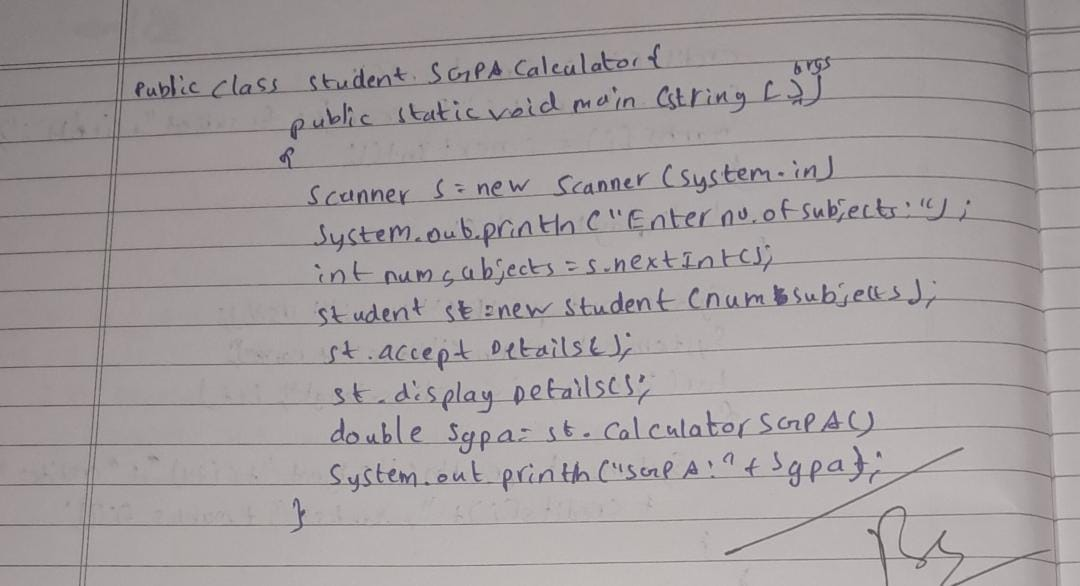 public class student SGPA Calculator{
public static void main (string [ ]args)
{
Scanner s = new Scanner (system.in)
System.out.println ("Enter no. of subjects:");
int numsubjects = s.nextInt();
student st = new student (numsubjects);
st.accept Details();
st.display Details();
double Sgpa = st. Calculator SGPA()
System.out println ("SGPA:" + Sgpa);
}